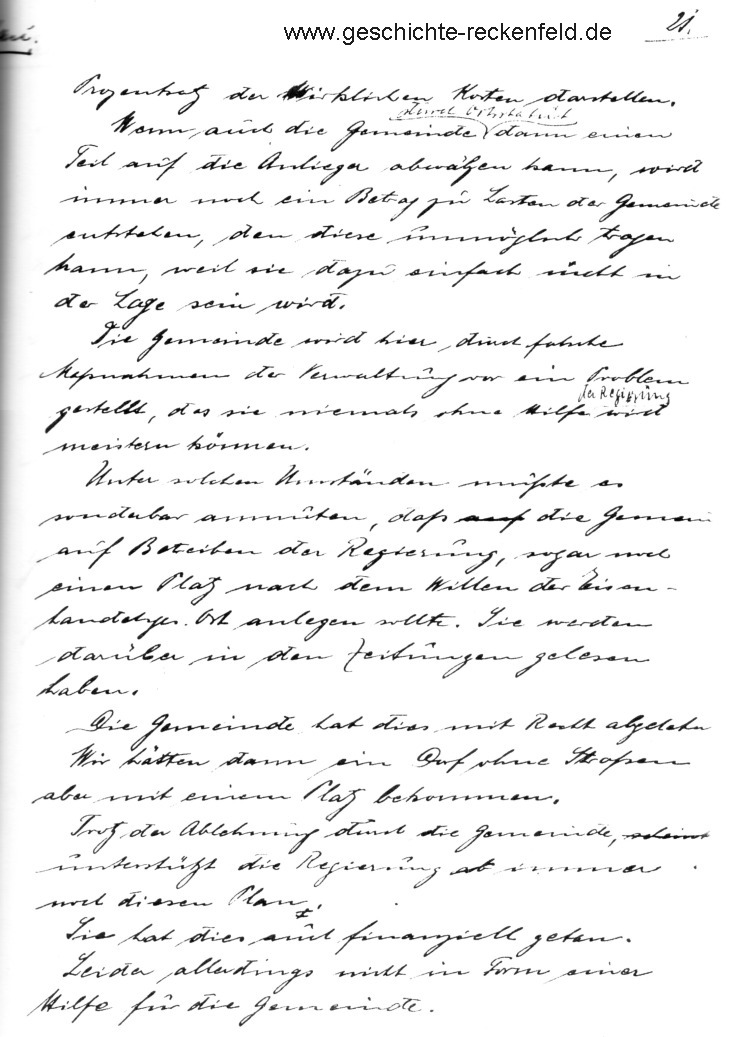 www.geschichte-reckenfeld.de
21.
Prozentsatz der Wirklichen Kosten darstellen.
durch Ortsstatut
Wenn auch die Gemeinde dann einen
Teil auf die Anlieger abwälzen kann, wird
immer noch ein Betrag zu Lasten der Gemeinde
entstehen, den diese unmöglich tragen
kann, weil sie dazu einfach nicht in
der Lage sein wird.
Die Gemeinde wird hier, durch falsche
Maßnahmen der Verwaltung vor ein Problem
der Regierung
gestellt, das sie niemals ohne Hilfe wird
meistern können.
Unter solchen Umständen müßte es
sonderbar anmuten, daß auf die Gemein
auf Betreiben der Regierung, sogar noch
einen Platz nach dem Willen der Eisen-
handelsges. Ost anlegen sollte. Sie werden
darüber in den Zeitungen gelesen
haben.
Die Gemeinde hat dies mit Recht abgelehn
Wir hätten dann ein Dorf ohne Straßen
aber mit einem Platz bekommen.
Trotz der Ablehnung durch die Gemeinde, scheint
unterstützt die Regierung immer
noch diesen Plan.
Sie hat dies auch finanziell getan.
Leider allerdings nicht in Form einer
Hilfe für die Gemeinde.